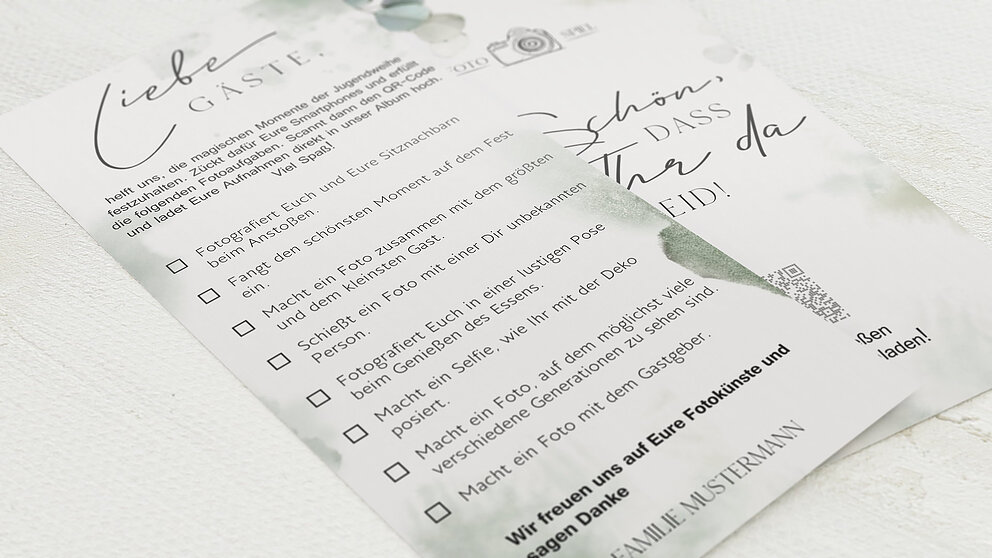 Liebe
GÄSTE,
helft uns, die magischen Momente der Jugendweihe
festzuhalten. Zückt dafür Eure Smartphones und erfüllt
die folgenden Fotoaufgaben. Scannt dann den QR-Code
und ladet Eure Aufnahmen direkt in unser Album hoch.
Viel Spaß!
Fotografiert Euch und Eure Sitznachbarn
beim Anstoßen.
Fangt den schönsten Moment auf dem Fest
ein.
Macht ein Foto zusammen mit dem größten
und dem kleinsten Gast.
Schießt ein Foto mit einer Dir unbekannten
Person.
Fotografiert Euch in einer lustigen Pose
beim Genießen des Essens.
Macht ein Selfie, wie Ihr mit der Deko
posiert.
Macht ein Foto, auf dem möglichst viele
verschiedene Generationen zu sehen sind.
Macht ein Foto mit dem Gastgeber.
Wir freuen uns auf Eure Fotokünste und
sagen Danke
FAMILIE MUSTERMANN
FOTO SPIEL
Schön,
DASS
Ihr da
EID!
ßen
laden!